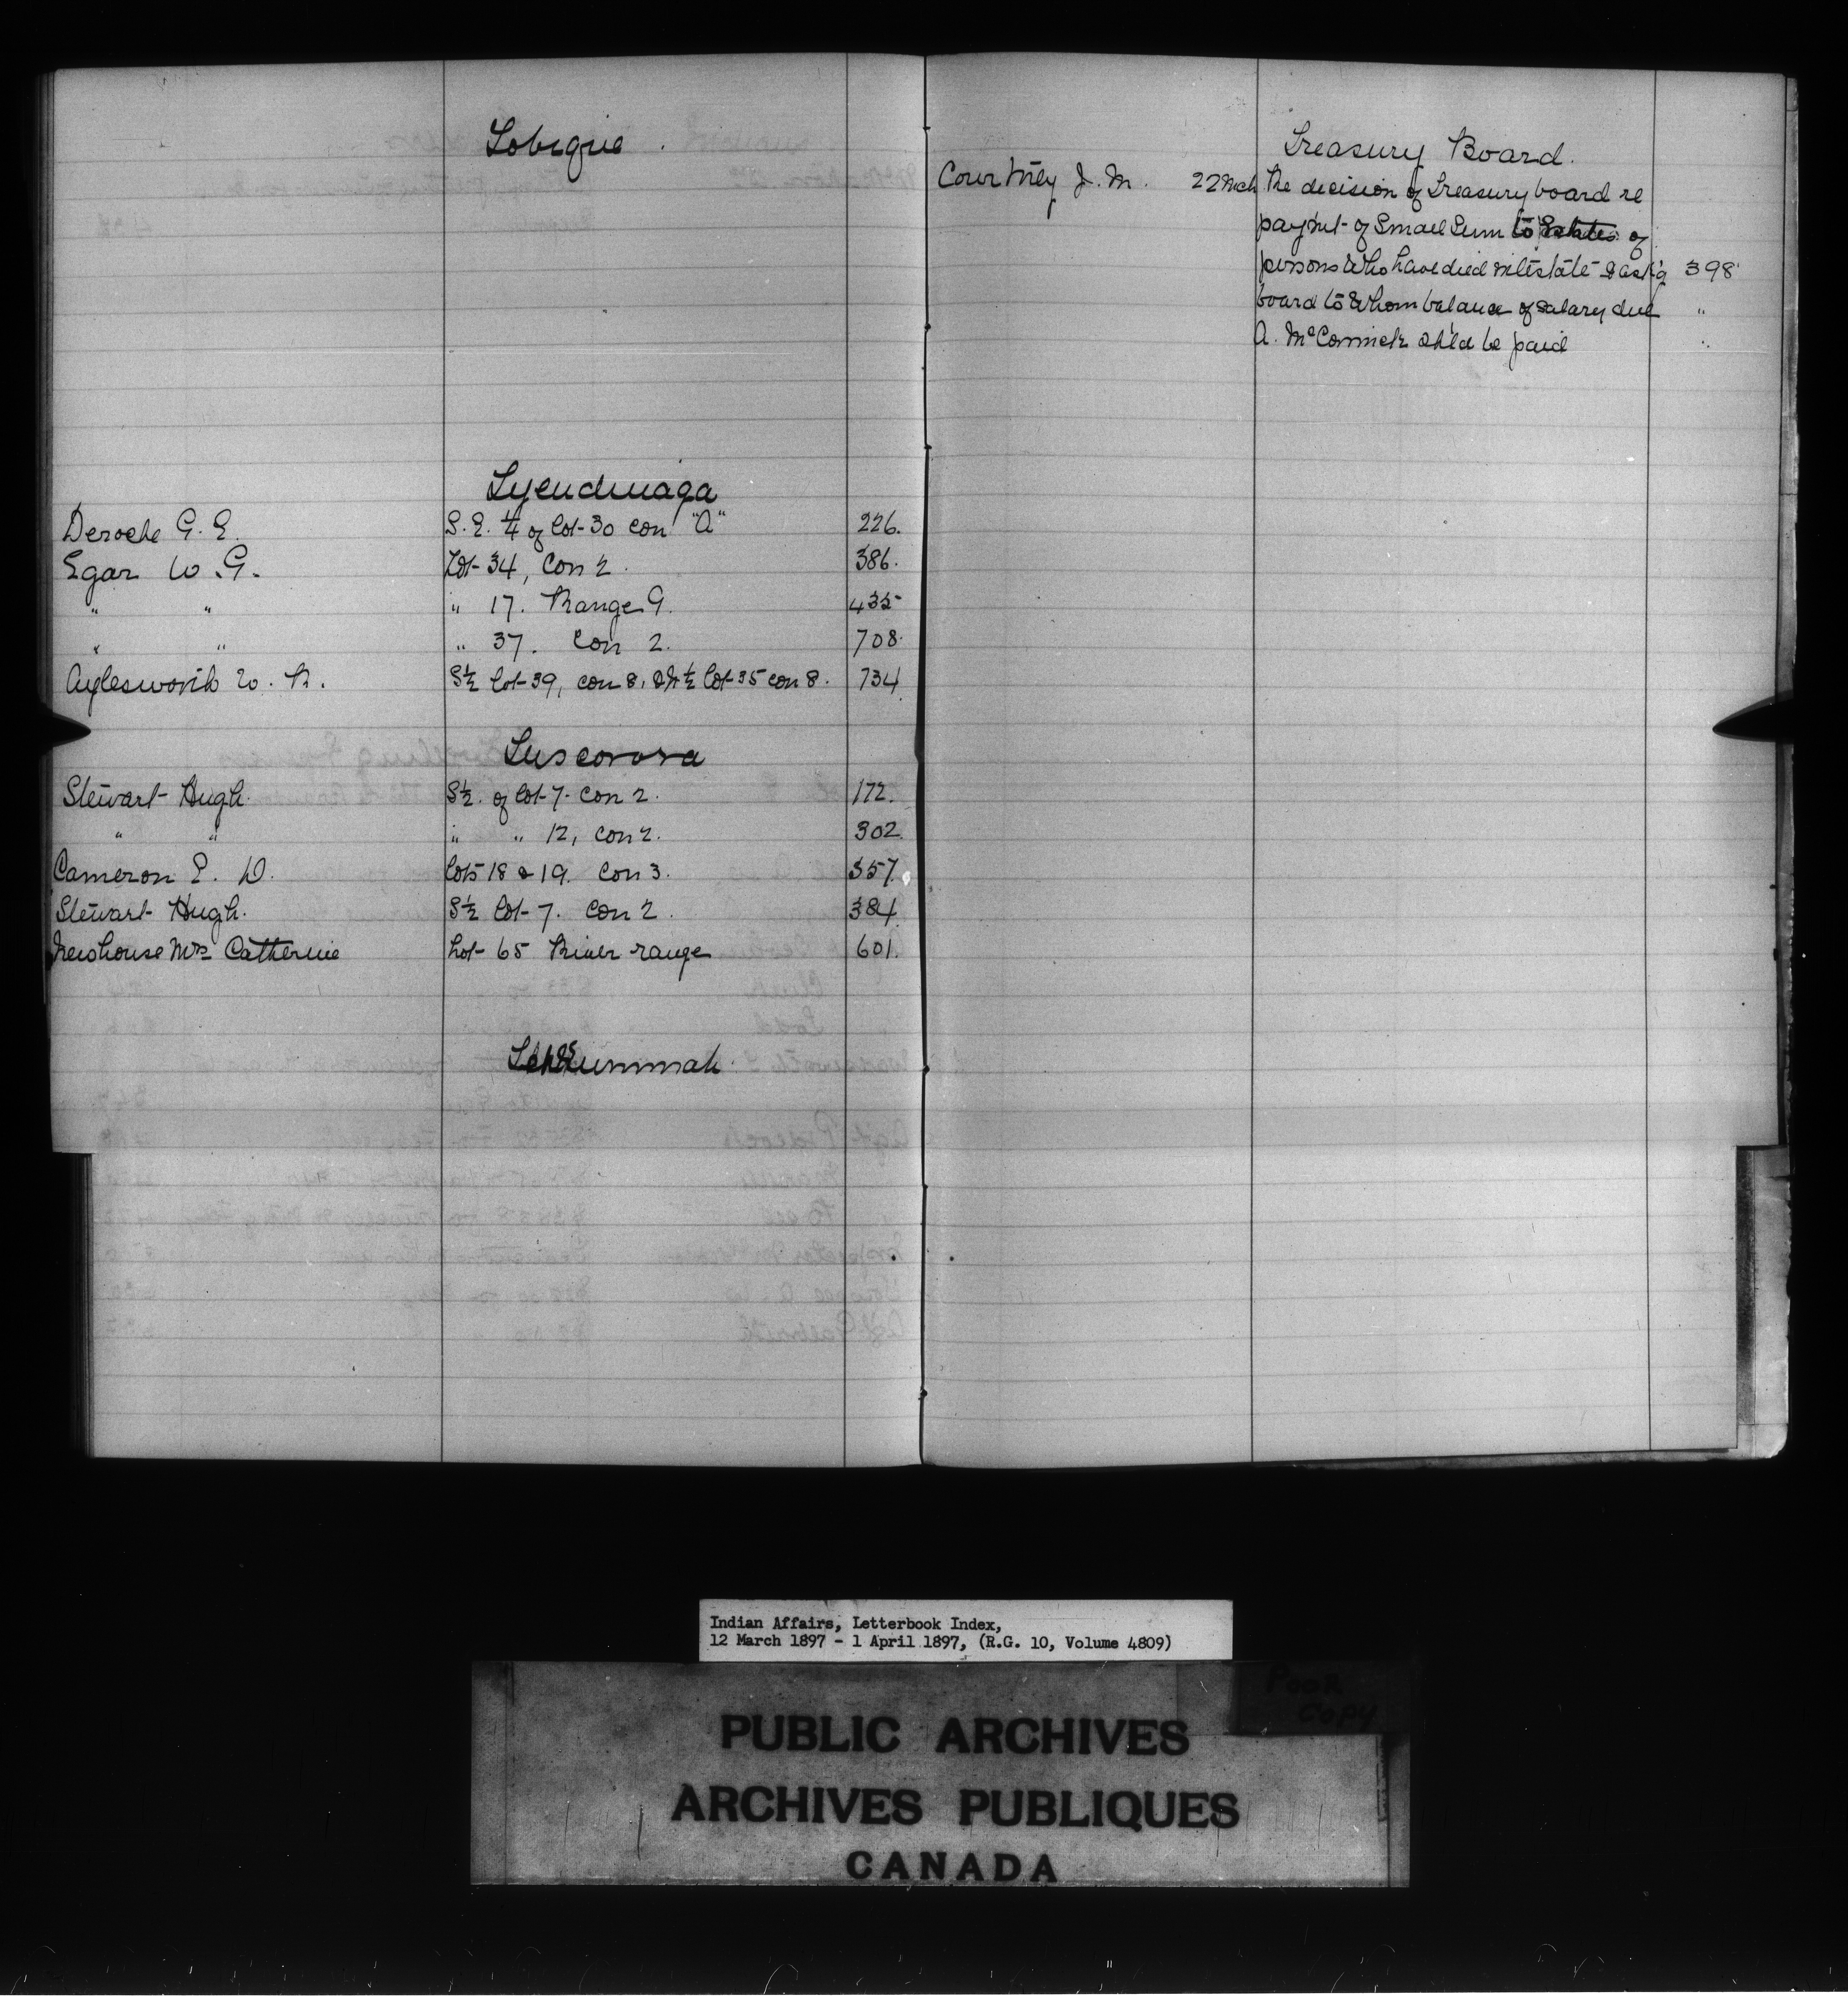 Tobique
Tyendinaga
Deroche G. E. S. E. 1/4 of lot 30 con "A" 226.
Egar W. G. Lot 34, Con 2. 386.
" " " 17. Range 9. 435
" " " 37. Con 2. 708.
Aylesworth W. R. S 1/2 lot 39, con 8, & N 1/2 lot 35 con 8. 734
Tuscorora
Stewart Hugh. S 1/2. of lot 7. con 2. 172.
" " " " 12, con 2. 302.
Cameron E. D. lots 18 & 19. Con 3. 357.
Stewart Hugh. S 1/2 lot 7. Con 2. 384
Newhouse Mrs Catherine Lot 65 River range 601.
Treasury Board.
Courtney J. M. 22 Mch The decision of Treasury board re
paymt of small sum to Estates of
persons who have died intestate & ask'g 398
board to whom balance of salary due "
A. McCormick sh'ld be paid "
Indian Affairs, Letterbook Index,
12 March 1897 - 1 April 1897, (R.G. 10, Volume 4809)
Poor
Copy
PUBLIC ARCHIVES
ARCHIVES PUBLIQUES
CANADA